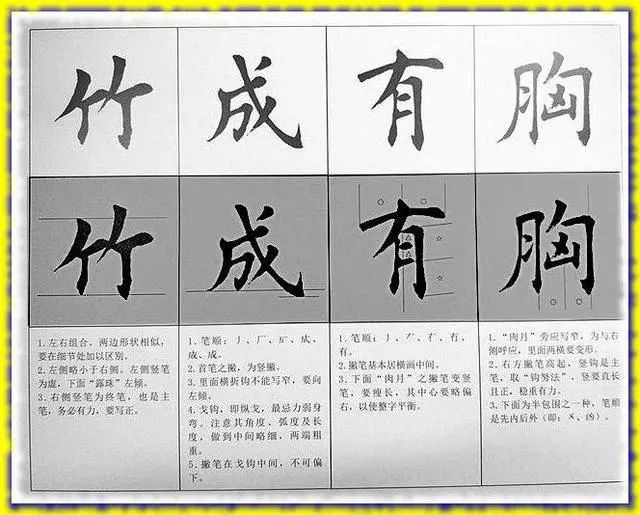 竹 成 有 胸
竹 成 有 胸
1.左右组合，两边形状相似，
要在细节处加以区别。
2.左侧略小于右侧。左侧竖笔
为虚，下面“露珠”左倾。
3.右侧竖笔为终笔，也是主
笔，务必有力，要写正。
成、成。
2.首笔之撇，为竖撇。
3.里面横折钩不能写窄，要向
左倾。
4.戈钩，即纵戈，最忌力弱身
弯。注意其角度、弧度及长
度，做到中间略细，两端粗
重。
5.撇笔在戈钩中间，不可偏
下。
有。
2.撇笔基本居横画中间。
3.下面“肉月”之撇笔变竖
笔，要瘦长，其中心要略偏
右，以使整字平衡。
1.“肉月”旁应写窄，为与右
侧呼应，里面两横要变形。
2.右方撇笔高起，竖钩是主
笔，取“钩努法”，竖要直长
且正，稳重有力。
3.下面为半包围之一种，笔顺
是先内后外（即：㐅、凶）。